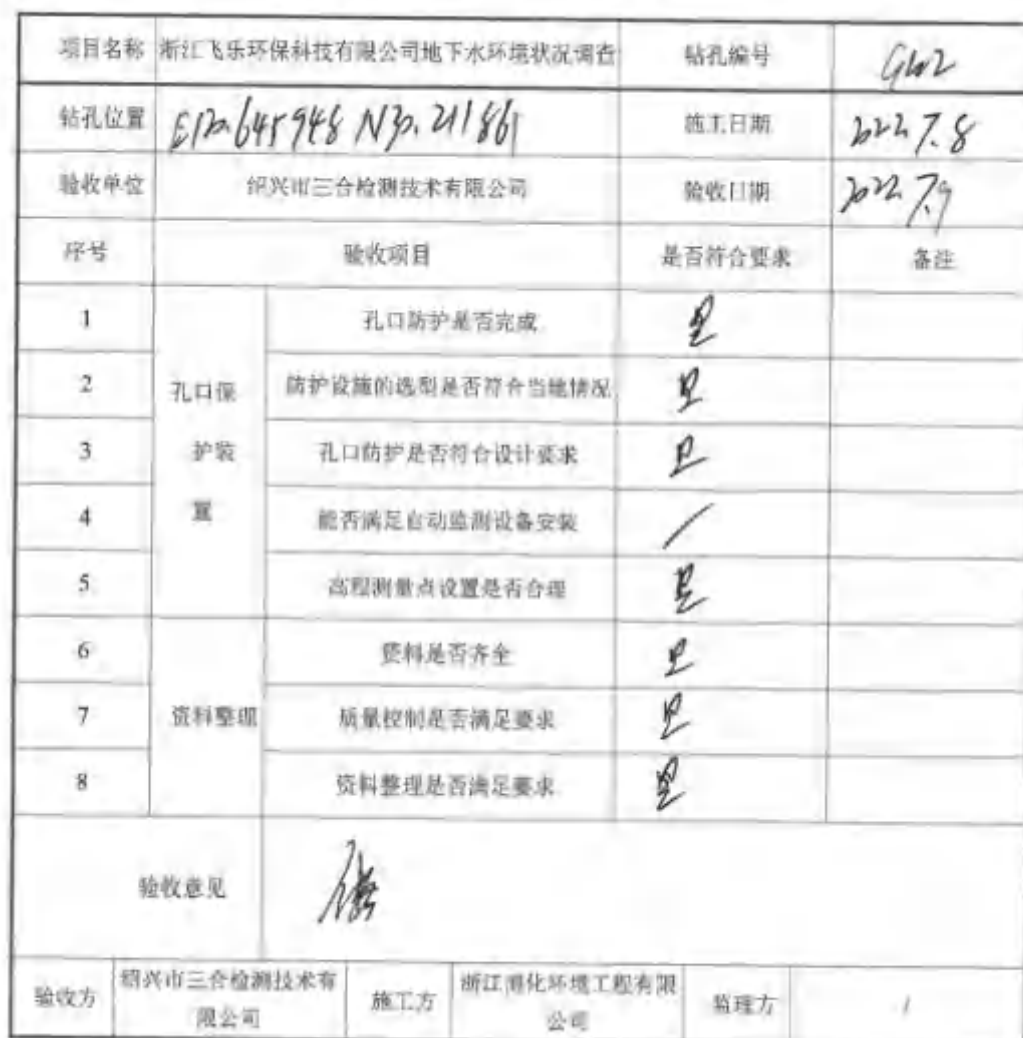 项目名称 浙江飞乐环保科技有限公司地下水环境状况调查 钻孔编号 GW2
钻孔位置 E120.645948 N30.211861 施工日期 2022.7.8
验收单位 绍兴市三合检测技术有限公司 验收日期 2022.7.9
序号 验收项目 是否符合要求 备注
1 孔口防护是否完成 是
2 防护设施的选型是否符合当地情况 是
孔口保
3 护装 孔口防护是否符合设计要求 是
4 置 能否满足自动监测设备安装 /
5 高程测量点设置是否合理 是
6 资料是否齐全 是
7 资料整理 质量控制是否满足要求 是
8 资料整理是否满足要求 是
验收意见
验收方 绍兴市三合检测技术有
限公司 施工方 浙江 化环境工程有限
公司 监理方 /